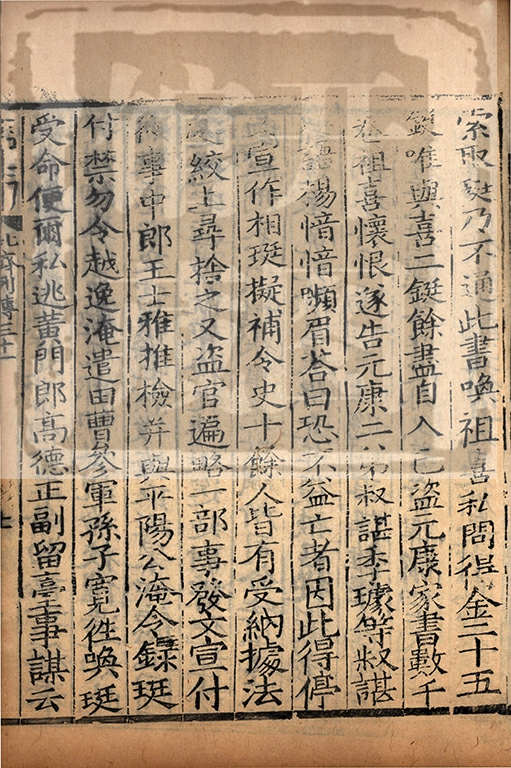 索取珽乃不通此書喚祖喜私問得金二十五
鋌唯與喜二鋌餘盡自入己盜元康家書數千
卷祖喜懷恨遂告元康二弟叔諶季璩等叔諶
楊愔愔嚬眉荅曰恐不益亡者因此得停
宣作相珽擬補令史十餘人皆有受納據法
絞上尋捨之又盜官遍略一部事發文宣付
事中郎王士雅推檢并與平陽公淹令錄珽
付禁勿令越逸淹遣田曹參軍孫子寬往喚珽
受命便爾私逃黃門郎高德正副留臺事謀云
北齊列傳三十一
七